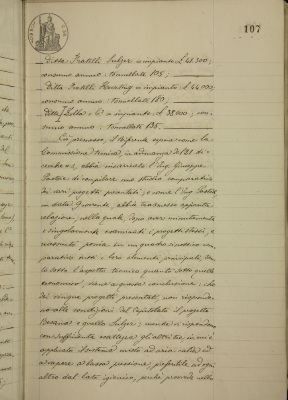 107
Ditta Fratelli Sulzer = impianto £ 41.300;
consumo annuo: tonnellate 105;
Ditta Fratelli Körting = impianto £ 44.000,
consumo annuo: tonnellate 180.
Ditta & C° = impianto £ 38000; con-
sumo annuo: tonnellate 135.
Ciò premesso, il Referente espone come la
Commissione Tecnica, in adunanza del 21 di-
cembre u.s., abbia incaricato l'Ing. Giuseppe
di compilare uno studio comparativo
dei vari progetti presentati; e come l'Ing.
in data abbia trasmesso apposita
relazione, nella quale, dopo aver minutamente
e singolarmente esaminati i progetti stessi, e
riassunti poscia in un quadro sinottico com-
parativo tutti i loro elementi principali, tan-
to sotto l'aspetto tecnico quanto sotto quello
economico, viene a questa conclusione: che
dei cinque progetti presentati, non rispondo-
no alle condizioni del Capitolato il progetto
e quello Sulzer; mentre vi rispondono
con sufficiente esattezza gli altri tre, in cui è
applicato il sistema misto ad aria calda ed
a vapore a bassa pressione, preferibile ad ogni
altro dal lato igienico, perché provvede alla